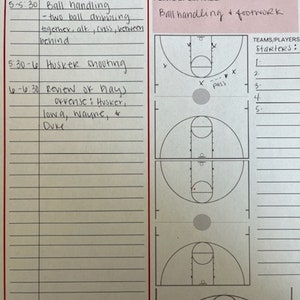 5-5:30 Ball handling
- two ball dribbling
together, alt, cross, between
behind
5:30-6 Husker shooting
6-6:30 Review of plays
offense: Husker,
Iowa, Wayne, &
Duke
Ball handling & footwork
pass
TEAMS/PLAYERS
Starters:
1-
2-
3-
4-
5-